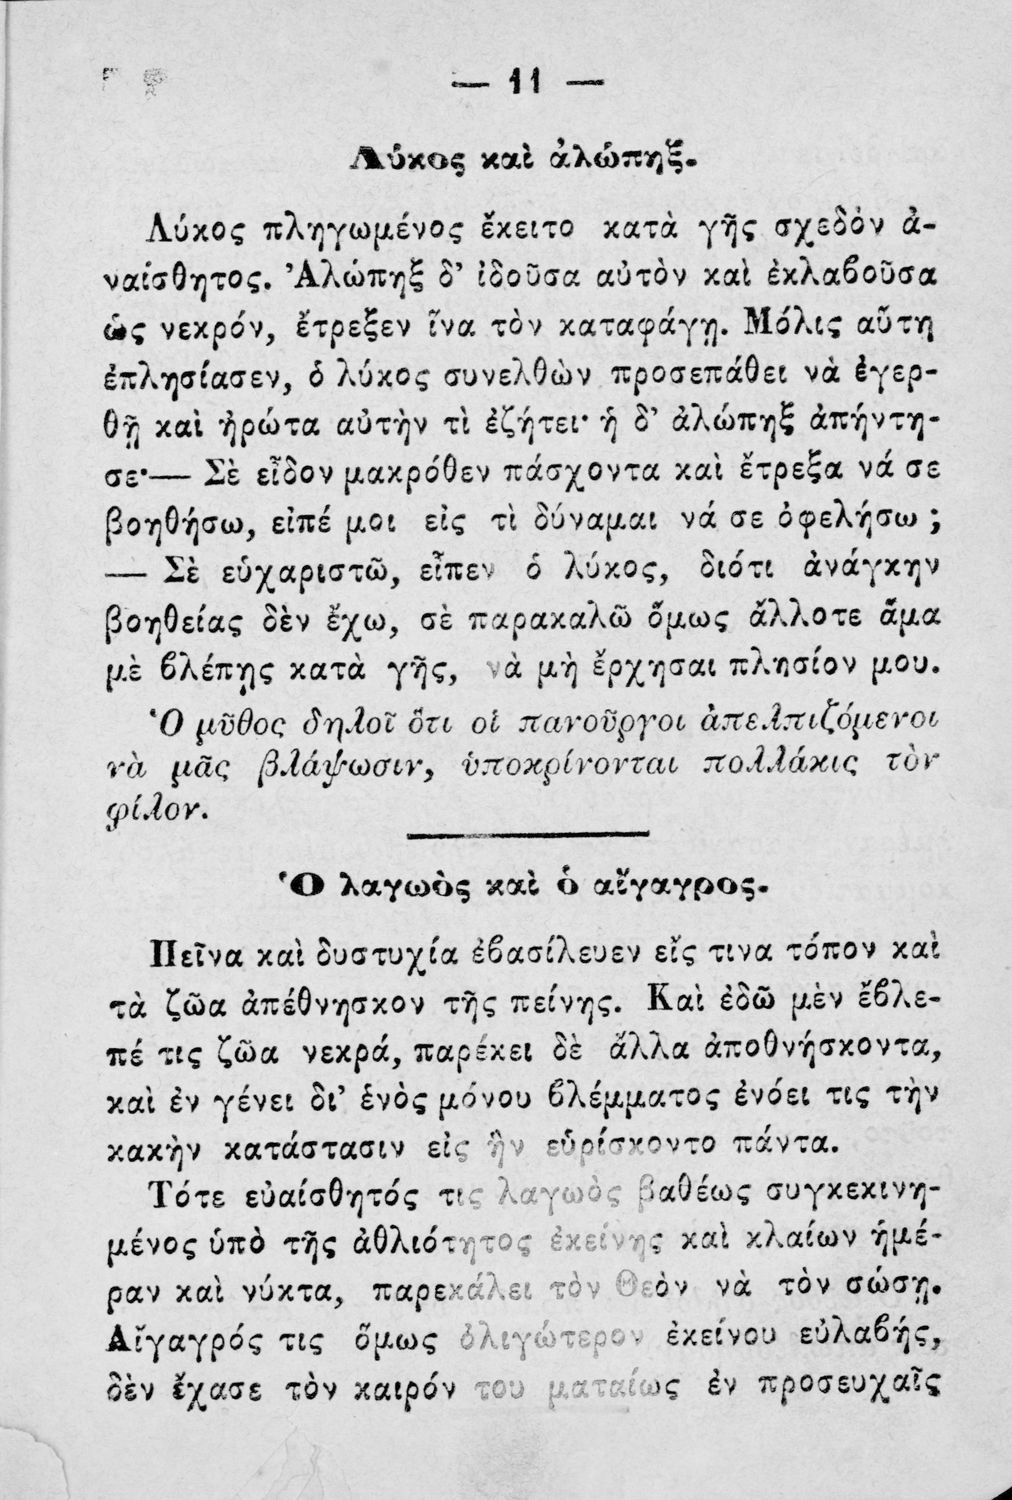 — 11 —
Λύκος καὶ ἀλώπηξ.
Λύκος πληγωμένος ἔκειτο κατὰ γῆς σχεδὸν ἀ-
ναίσθητος. Ἀλώπηξ δ’ ἰδοῦσα αὐτὸν καὶ ἐκλαβοῦσα
ὡς νεκρόν, ἔτρεξεν ἵνα τὸν καταφάγῃ. Μόλις αὕτη
ἐπλησίασεν, ὁ λύκος συνελθὼν προσεπάθει νὰ ἐγερ-
θῇ καὶ ἠρώτα αὐτὴν τὶ ἐζήτει· ἡ δ’ ἀλώπηξ ἀπήντη-
σε·— Σὲ εἶδον μακρόθεν πάσχοντα καὶ ἔτρεξα νά σε
βοηθήσω, εἰπέ μοι εἰς τὶ δύναμαι νά σε ὀφελήσω ;
— Σὲ εὐχαριστῶ, εἶπεν ὁ λύκος, διότι ἀνάγκην
βοηθείας δὲν ἔχω, σὲ παρακαλῶ ὅμως ἄλλοτε ἅμα
μὲ βλέπῃς κατὰ γῆς, νὰ μὴ ἔρχησαι πλησίον μου.
Ὁ μῦθος δηλοῖ ὅτι οἱ πανοῦργοι ἀπελπιζόμενοι
νὰ μᾶς βλάψωσιν, ὑποκρίνονται πολλάκις τὸν
φίλον.
Ὁ λαγωὸς καὶ ὁ αἴγαγρος.
Πεῖνα καὶ δυστυχία ἐβασίλευεν εἴς τινα τόπον καὶ
τὰ ζῶα ἀπέθνησκον τῆς πείνης. Καὶ ἐδῶ μὲν ἔβλε-
πέ τις ζῶα νεκρά, παρέκει δὲ ἄλλα ἀποθνήσκοντα,
καὶ ἐν γένει δι’ ἑνὸς μόνου βλέμματος ἐνόει τις τὴν
κακὴν κατάστασιν εἰς ἣν εὑρίσκοντο πάντα.
Τότε εὐαίσθητός τις λαγωὸς βαθέως συγκεκινη-
μένος ὑπὸ τῆς ἀθλιότητος ἐκείνης καὶ κλαίων ἡμέ-
ραν καὶ νύκτα, παρεκάλει τὸν Θεὸν νὰ τὸν σώσῃ.
Αἴγαγρός τις ὅμως ὀλιγώτερον ἐκείνου εὐλαβής,
δὲν ἔχασε τὸν καιρόν του ματαίως ἐν προσευχαῖς